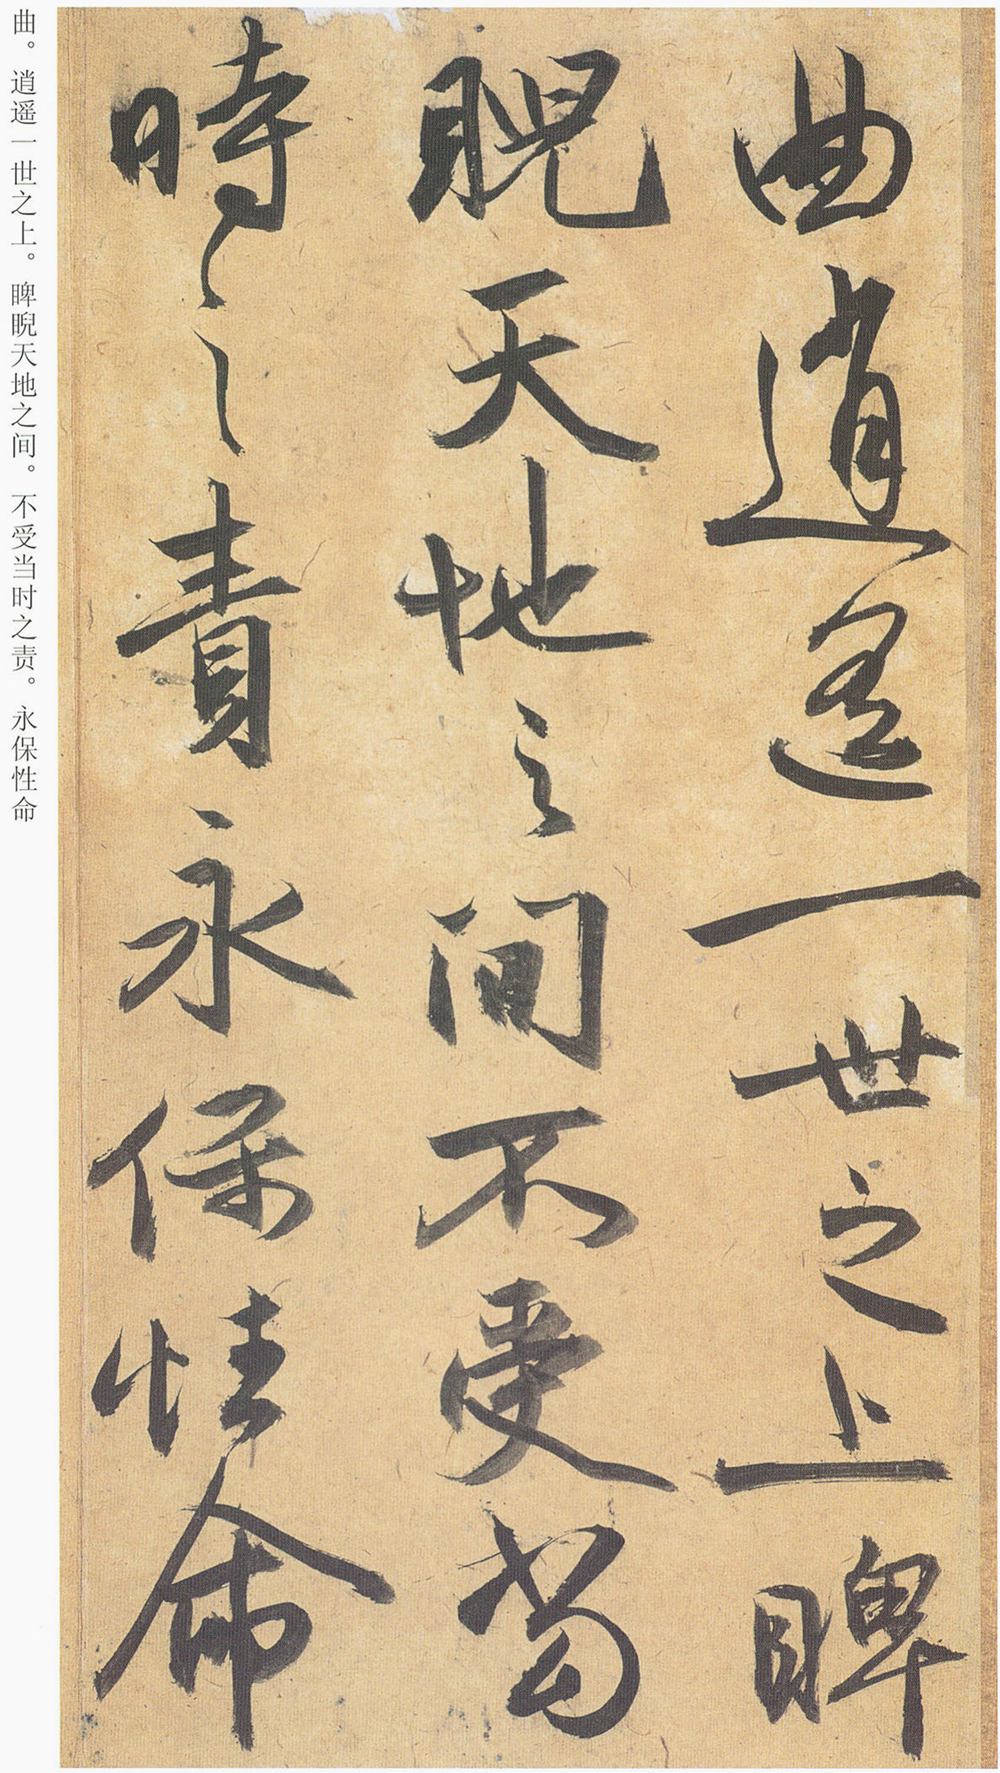 曲逍遥一世之上睥
睨天地之间不受当
時之責永保性命
曲。逍遥一世之上。睥睨天地之间。不受当时之责。永保性命